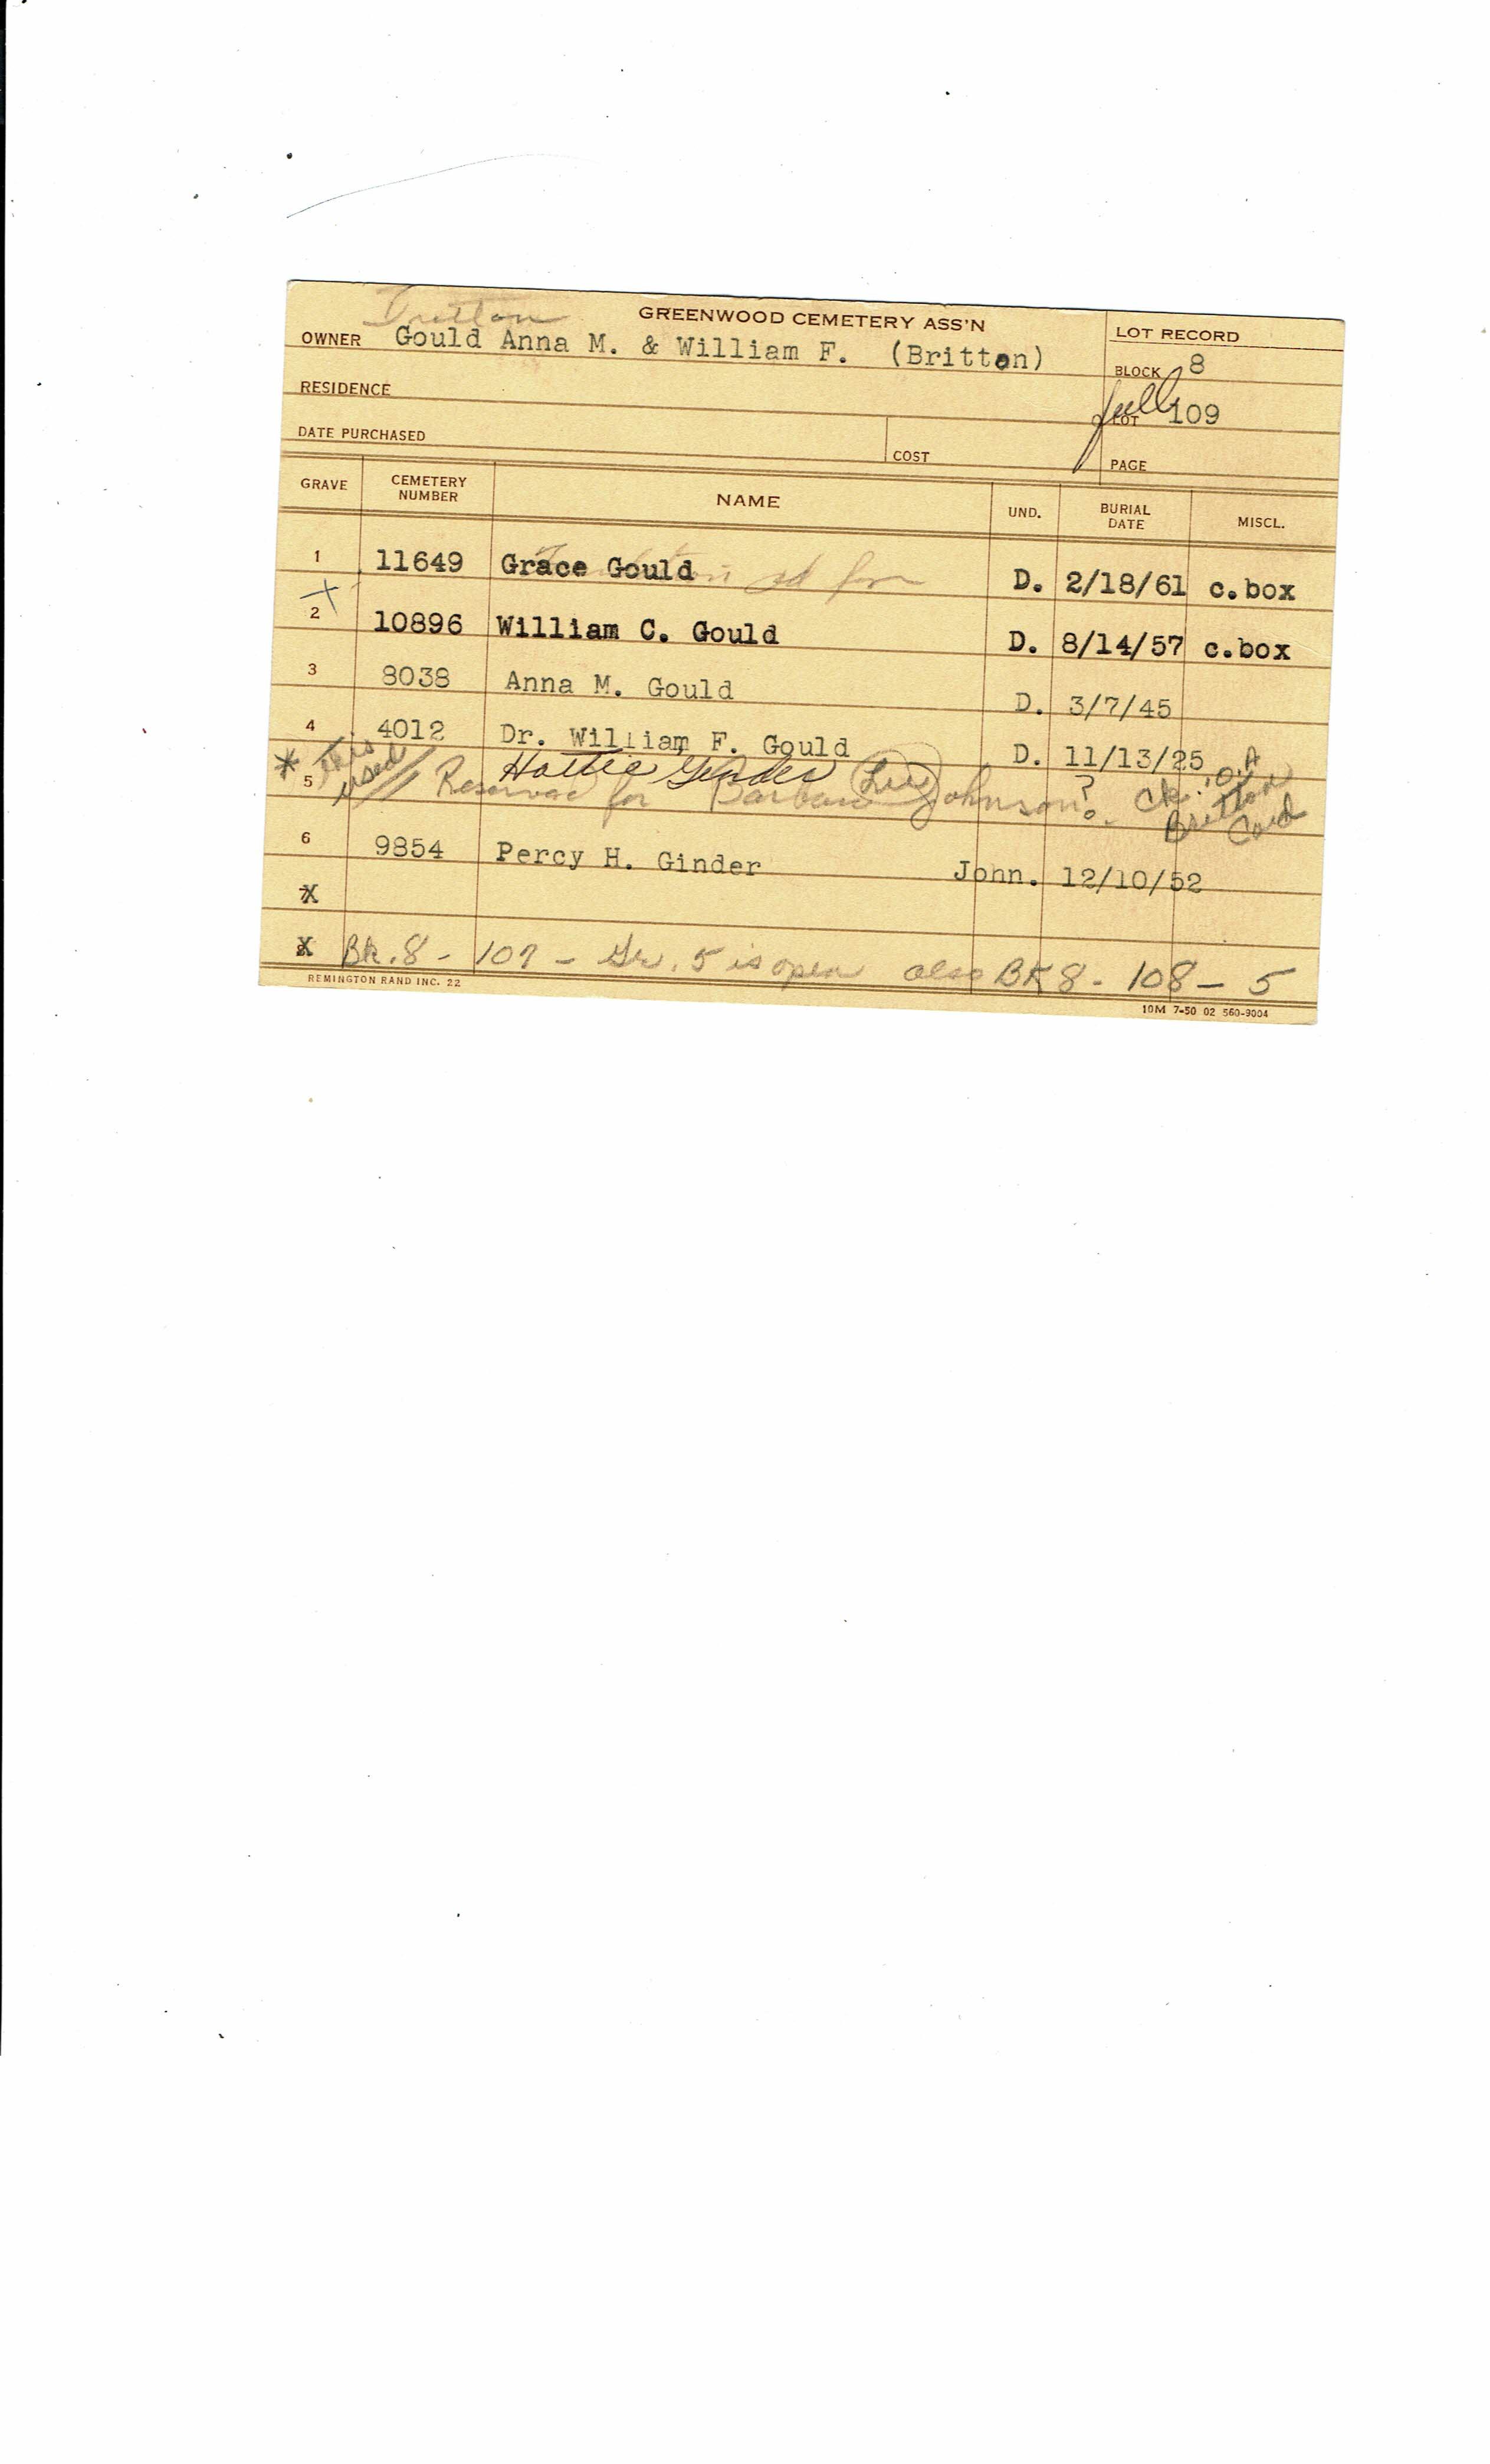 Britton
GREENWOOD CEMETERY ASS'N
LOT RECORD
OWNER Gould Anna M. & William F. (Britton)
BLOCK 8
RESIDENCE
full
LOT 109
DATE PURCHASED
COST
PAGE
GRAVE CEMETERY NUMBER NAME UND. BURIAL DATE MISCL.
1 11649 Grace Gould D. 2/18/61 c.box
X
2 10896 William C. Gould D. 8/14/57 c.box
3 8038 Anna M. Gould D. 3/7/45
4 4012 Dr. William F. Gould D. 11/13/25
* this used
Hattie Ginder
5 Reserved for Barbara Johnson? Ck. O.A Britton Card
6 9854 Percy H. Ginder John. 12/10/52
X
X Bk. 8 - 107 - Gr. 5 is open also BK 8 - 108 - 5
REMINGTON RAND INC. 22
10M 7-50 02 560-9004